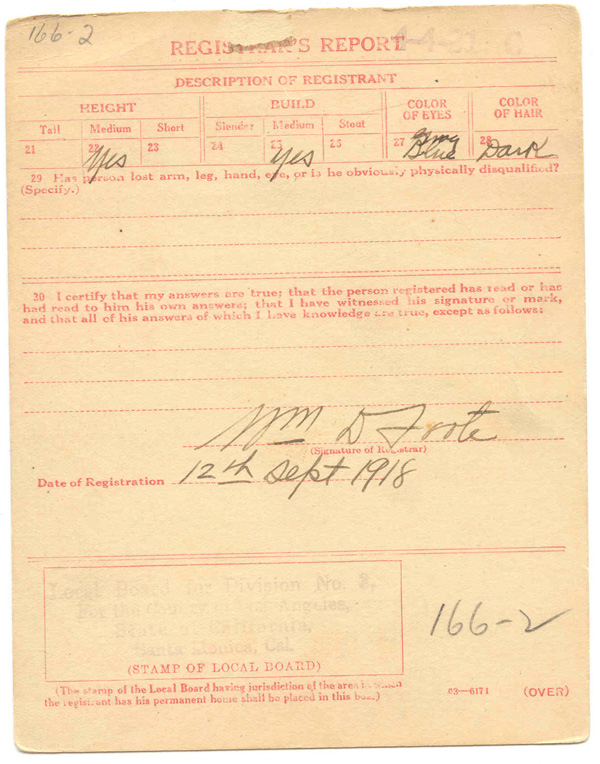 166-2
REGISTRAR'S REPORT
DESCRIPTION OF REGISTRANT
HEIGHT BUILD COLOR OF EYES COLOR OF HAIR
Tall Medium Short Slender Medium Stout
21 22 Yes 23 24 25 Yes 26 27 Blue 28 Dark
29 Has person lost arm, leg, hand, eye, or is he obviously physically disqualified?
(Specify.)
30 I certify that my answers are true; that the person registered has read or has
had read to him his own answers; that I have witnessed his signature or mark,
and that all of his answers of which I have knowledge are true, except as follows:
Wm D Foote
(Signature of Registrar)
Date of Registration 12th Sept 1918
Local Board for Division No. 2,
For the County of Los Angeles,
State of California,
Santa Monica, Cal.
(STAMP OF LOCAL BOARD)
166-2
(The stamp of the Local Board having jurisdiction of the area in which
the registrant has his permanent home shall be placed in this box.)
03—6171 (OVER)